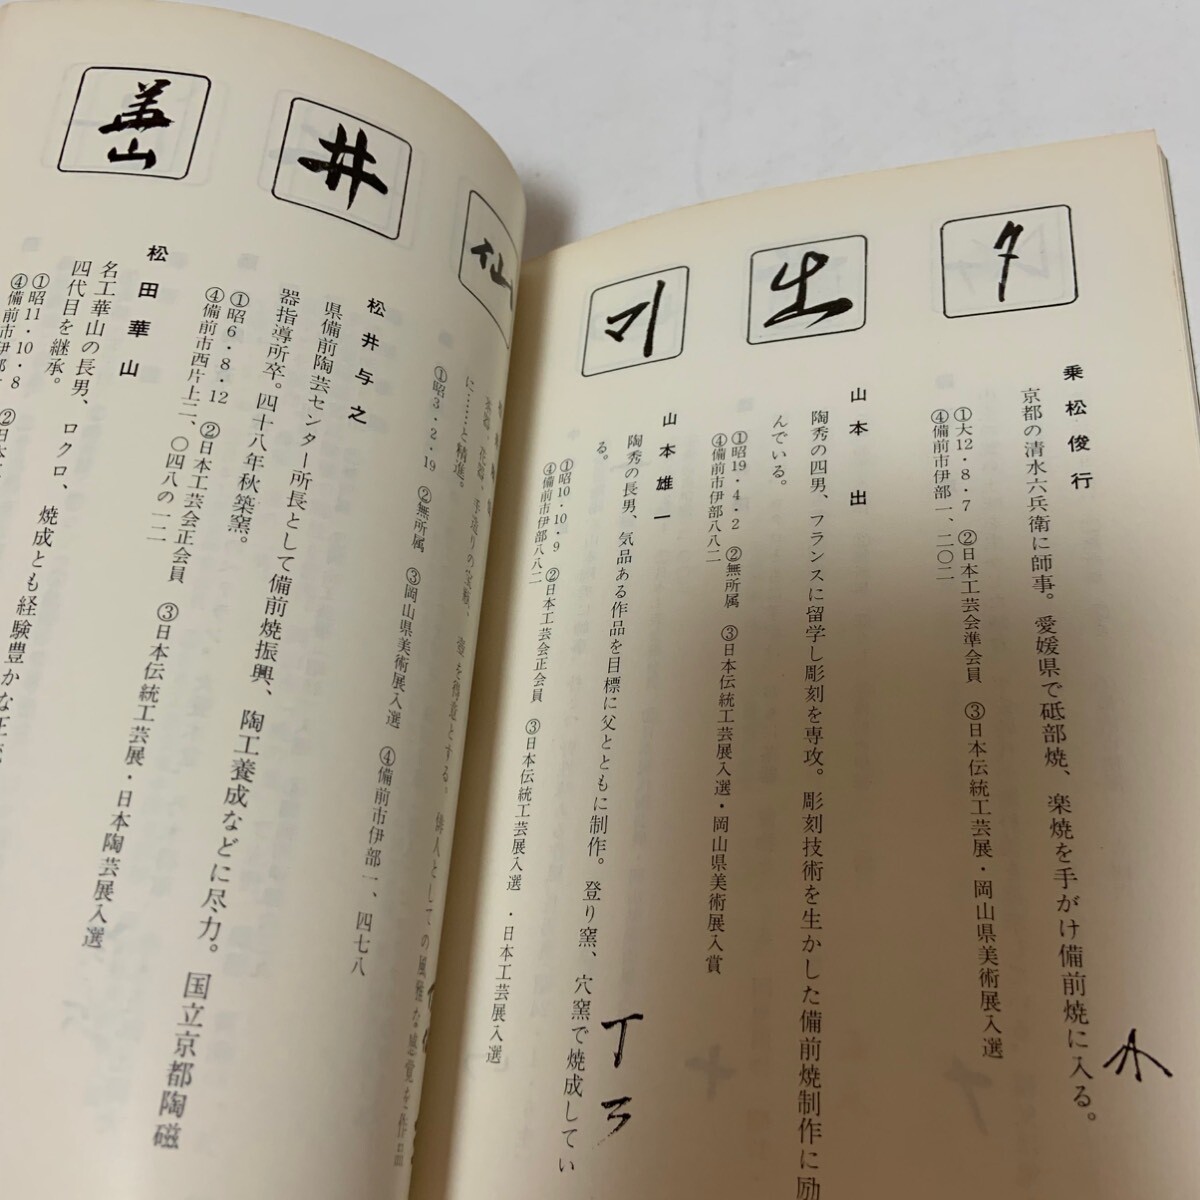 乗松俊行
京都の清水六兵衛に師事。愛媛県で砥部焼、楽焼を手がけ備前焼に入る。
①大12・8・7 ②日本工芸会準会員 ③日本伝統工芸展・岡山県美術展入選
④備前市伊部一、二〇二
出
山本出
陶秀の四男、フランスに留学し彫刻を専攻。彫刻技術を生かした備前焼制作に励
んでいる。
①昭19・4・2 ②無所属 ③日本伝統工芸展入選・岡山県美術展入賞
④備前市伊部八八二
山本雄一
陶秀の長男、気品ある作品を目標に父とともに制作。登り窯、穴窯で焼成してい
る。
①昭10・10・9 ②日本工芸会正会員 ③日本伝統工芸展入選・日本工芸展入選
④備前市伊部八八二
仙
に……と精進。
①昭3・2・19 ②無所属 ③岡山県美術展入選 ④備前市伊部一、四七八
井
松井与之
県備前陶芸センター所長として備前焼振興、陶工養成などに尽力。国立京都陶磁
器指導所卒。四十八年秋築窯。
①昭6・8・12 ②日本工芸会正会員 ③日本伝統工芸展・日本陶芸展入選
④備前市西片上二、〇四八の一二
華山
松田華山
名工華山の長男、ロクロ、焼成とも経験豊かな
四代目を継承。
①昭11・10・8
④備前市伊部